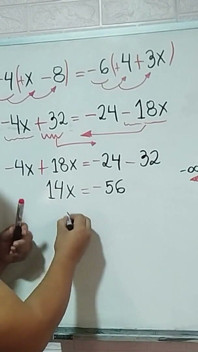 -4(+x - 8) = -6(+4+3x)
-4x + 32 = -24 - 18x
-4x + 18x = -24 - 32
14x = -56
-∞